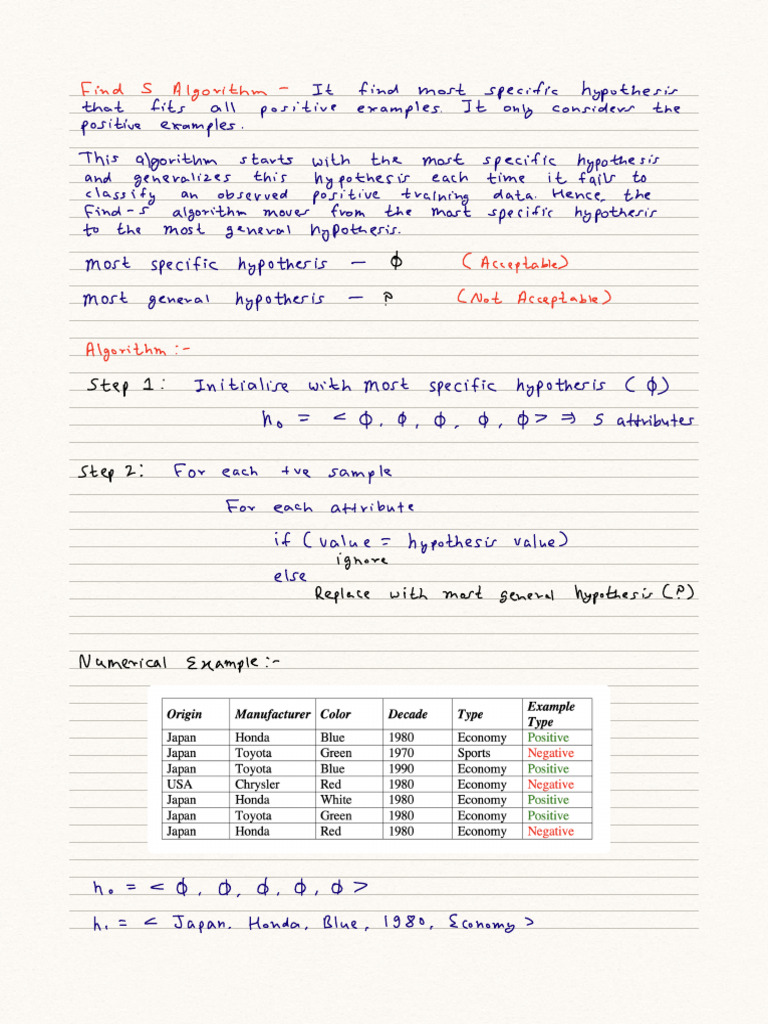 Find S Algorithm - It find most specific hypothesis
that fits all positive examples. It only considers the
positive examples.
This algorithm starts with the most specific hypothesis
and generalizes this hypothesis each time it fails to
classify an observed positive training data. Hence, the
Find-S algorithm moves from the most specific hypothesis
to the most general hypothesis.
most specific hypothesis — ϕ (Acceptable)
most general hypothesis — ? (Not Acceptable)
Algorithm :-
Step 1: Initialise with most specific hypothesis (ϕ)
h₀ = < ϕ, ϕ, ϕ, ϕ, ϕ > ⇒ 5 attributes
Step 2: For each +ve sample
For each attribute
if (value = hypothesis value)
ignore
else
Replace with most general hypothesis (?)
Numerical Example :-
Origin Manufacturer Color Decade Type Example Type
Japan Honda Blue 1980 Economy Positive
Japan Toyota Green 1970 Sports Negative
Japan Toyota Blue 1990 Economy Positive
USA Chrysler Red 1980 Economy Negative
Japan Honda White 1980 Economy Positive
Japan Toyota Green 1980 Economy Positive
Japan Honda Red 1980 Economy Negative
h₀ = < ϕ, ϕ, ϕ, ϕ, ϕ >
h₁ = < Japan, Honda, Blue, 1980, Economy >